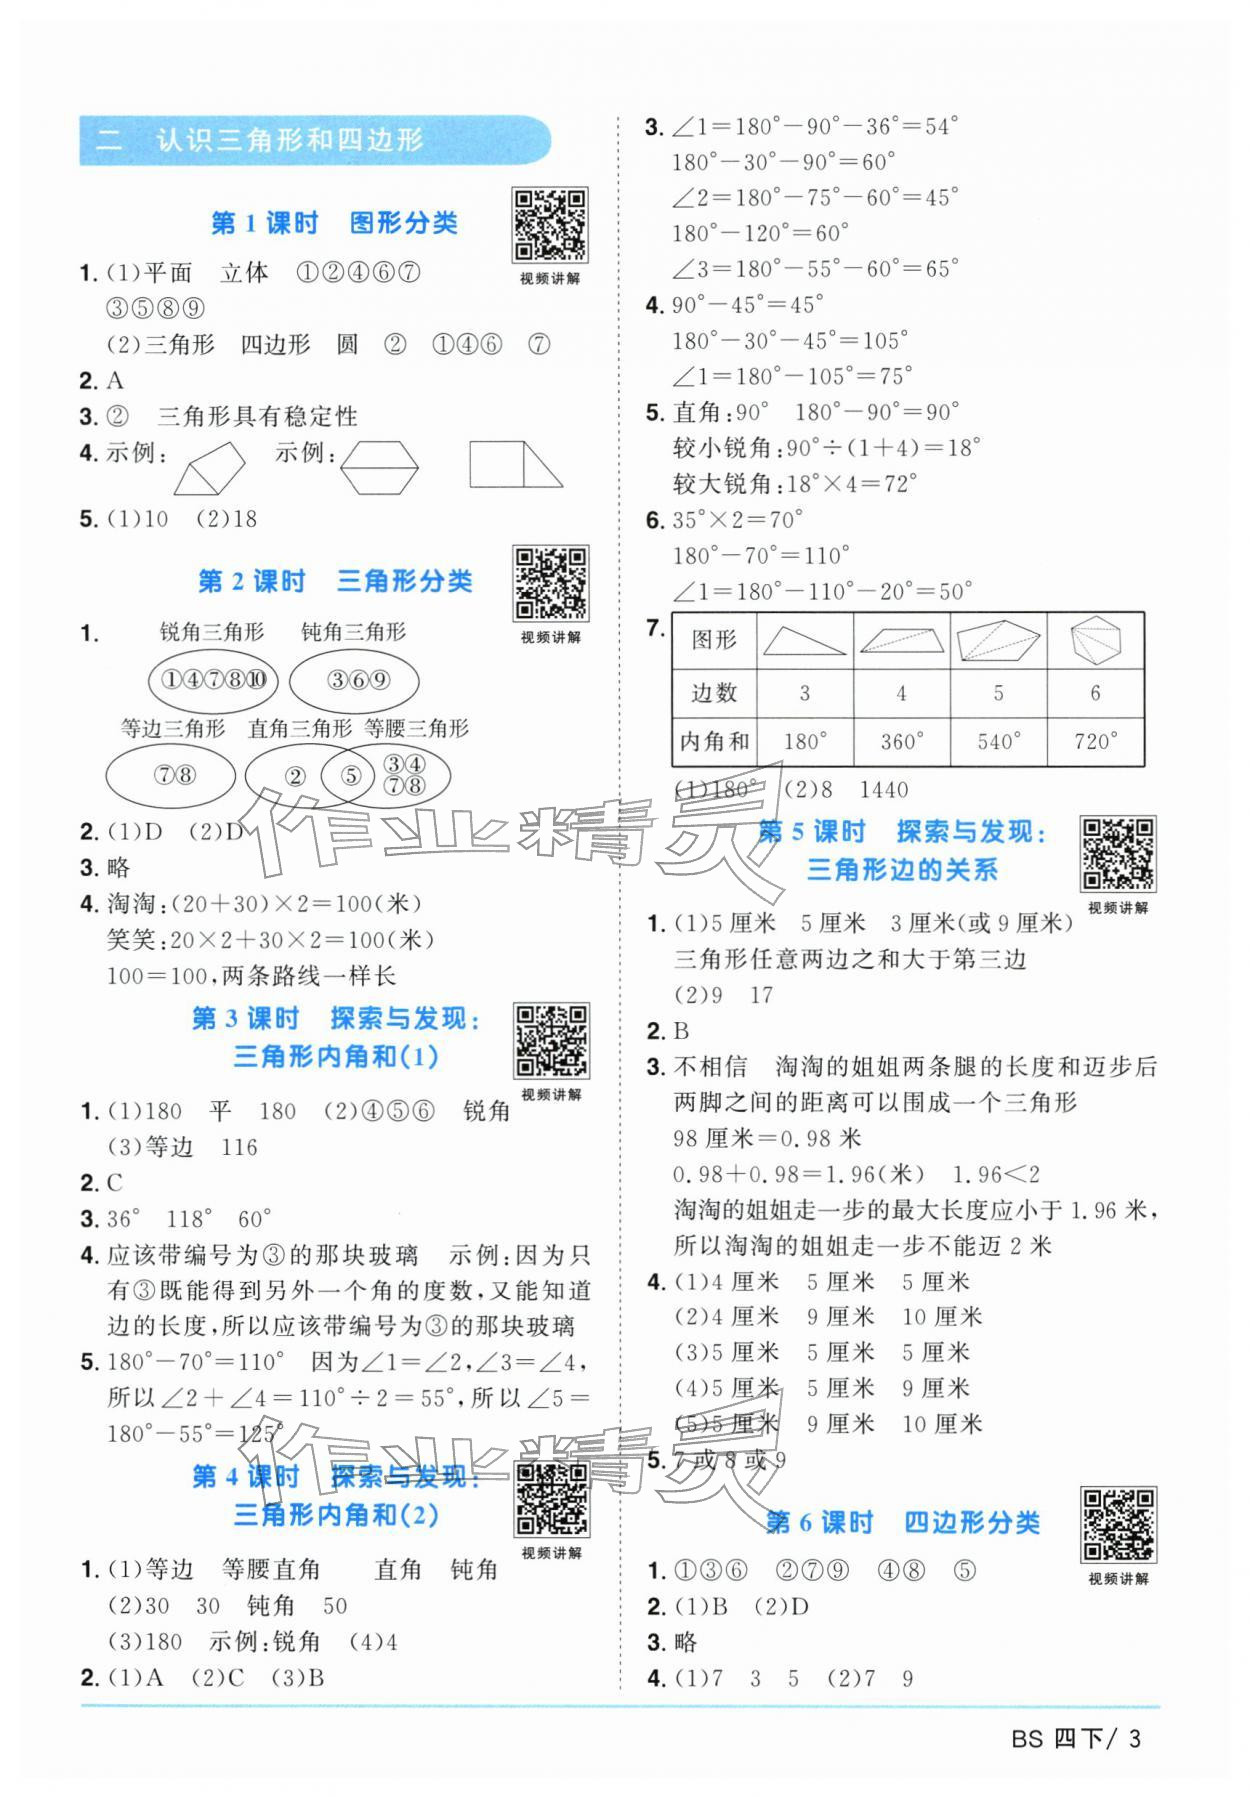 二 认识三角形和四边形
第 1 课时 图形分类
视频讲解
1. (1)平面 立体 ①②④⑥⑦
③⑤⑧⑨
(2)三角形 四边形 圆 ② ①④⑥ ⑦
2. A
3. ② 三角形具有稳定性
4. 示例: 示例:
5. (1)10 (2)18
第 2 课时 三角形分类
视频讲解
1. 锐角三角形 钝角三角形
①④⑦⑧⑩ ③⑥⑨
等边三角形 直角三角形 等腰三角形
⑦⑧ ② ⑤ ③④
⑦⑧
2. (1)D (2)D
3. 略
4. 淘淘:(20+30)×2=100(米)
笑笑:20×2+30×2=100(米)
100=100,两条路线一样长
第 3 课时 探索与发现:
三角形内角和(1)
视频讲解
1. (1)180 平 180 (2)④⑤⑥ 锐角
(3)等边 116
2. C
3. 36° 118° 60°
4. 应该带编号为③的那块玻璃 示例:因为只
有③既能得到另外一个角的度数,又能知道
边的长度,所以应该带编号为③的那块玻璃
5. 180°-70°=110° 因为∠1=∠2,∠3=∠4,
所以∠2+∠4=110°÷2=55°,所以∠5=
180°-55°=125°
第 4 课时 探索与发现:
三角形内角和(2)
视频讲解
1. (1)等边 等腰直角 直角 钝角
(2)30 30 钝角 50
(3)180 示例:锐角 (4)4
2. (1)A (2)C (3)B
3. ∠1=180°-90°-36°=54°
180°-30°-90°=60°
∠2=180°-75°-60°=45°
180°-120°=60°
∠3=180°-55°-60°=65°
4. 90°-45°=45°
180°-30°-45°=105°
∠1=180°-105°=75°
5. 直角:90° 180°-90°=90°
较小锐角:90°÷(1+4)=18°
较大锐角:18°×4=72°
6. 35°×2=70°
180°-70°=110°
∠1=180°-110°-20°=50°
7. 图形
边数 3 4 5 6
内角和 180° 360° 540° 720°
(1)180° (2)8 1440
第 5 课时 探索与发现:
三角形边的关系
视频讲解
1. (1)5 厘米 5 厘米 3 厘米(或 9 厘米)
三角形任意两边之和大于第三边
(2)9 17
2. B
3. 不相信 淘淘的姐姐两条腿的长度和迈步后
两脚之间的距离可以围成一个三角形
98 厘米=0.98 米
0.98+0.98=1.96(米) 1.96<2
淘淘的姐姐走一步的最大长度应小于 1.96 米,
所以淘淘的姐姐走一步不能迈 2 米
4. (1)4 厘米 5 厘米 5 厘米
(2)4 厘米 9 厘米 10 厘米
(3)5 厘米 5 厘米 5 厘米
(4)5 厘米 5 厘米 9 厘米
(5)5 厘米 9 厘米 10 厘米
5. 7 或 8 或 9
第 6 课时 四边形分类
视频讲解
1. ①③⑥ ②⑦⑨ ④⑧ ⑤
2. (1)B (2)D
3. 略
4. (1)7 3 5 (2)7 9
BS 四下/ 3
作业精灵
作业精灵